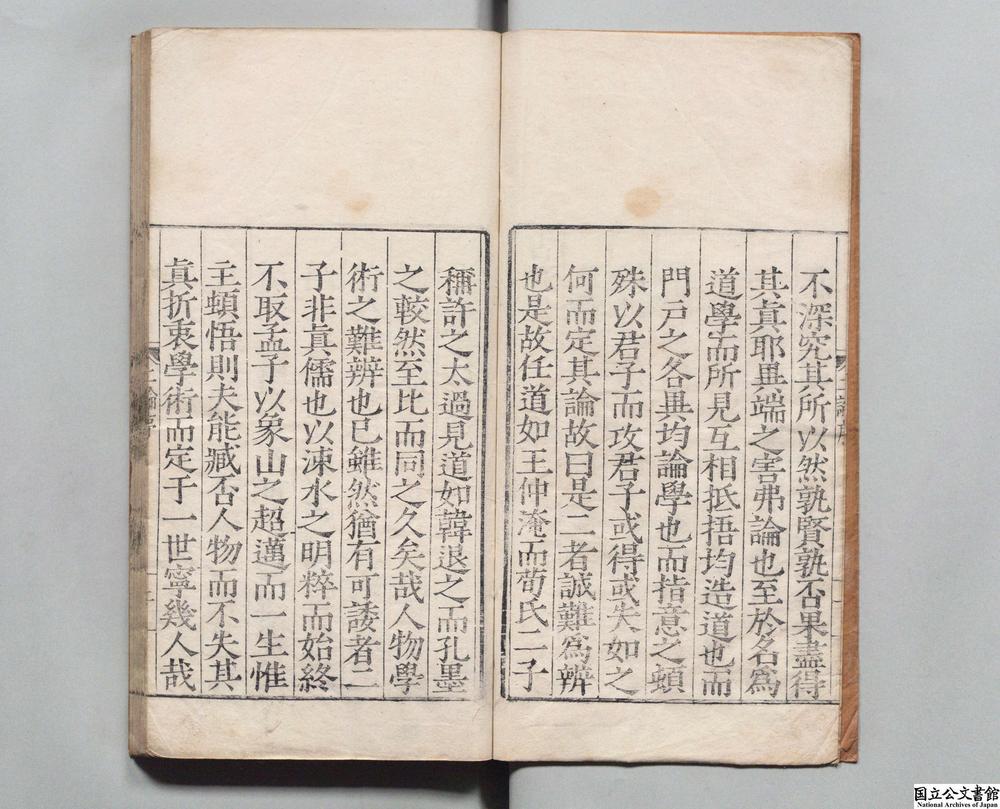 不深究其所以然孰賢孰否果盡得
其真耶異端之害弗論也至於名爲
道學而所見互相抵捂均造道也而
門戸之各異均論學也而指意之頓
殊以君子而攻君子或得或失如之
何而定其論故曰是二者誠難爲辨
也是故任道如王仲淹而荀氏二子
稱許之太過見道如韓退之而孔墨
之較然至比而同之久矣哉人物學
術之難辨也已雖然猶有可諉者二
子非真儒也以涑水之明粹而始終
不取孟子以象山之超邁而一生惟
主頓悟則夫能臧否人物而不失其
真折衷學術而定于一世寧幾人哉
国立公文書館
National Archives of Japan